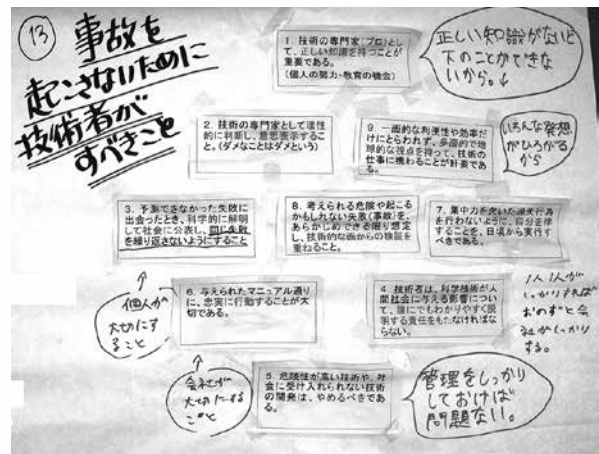 13
事故を
起こさないために
技術者が
すべきこと
1. 技術の専門家(プロ)とし
て、正しい知識を持つことが
重要である。
(個人の努力・教育の機会)
正しい知識がないと
下のことができな
いから。↓
2. 技術の専門家として理性
的に判断し、意思表示するこ
と。(ダメなことはダメという)
9. 一面的な利便性や効率だ
けにとらわれず、多面的で地
球的な視点を持って、技術の
仕事に携わることが肝要であ
る。
いろんな発想
がひろがる
から
3. 予測できなかった失敗に
出会ったとき、科学的に解明
して社会に公表し、同じ失敗
を繰り返さないようにすること
8. 考えられる危険や起こる
かもしれない失敗(事故)を、
あらかじめできる限り想定
し、技術的な面からの検証を
重ねること。
7. 集中力を欠いた過失行為
を行わないように、自分を律
することを、日頃から実行す
べきである。
個人が
大切にす
ること
6. 与えられたマニュアル通り
に、忠実に行動することが大
切である。
4. 技術者は、科学技術が人
間社会に与える影響につい
て、誰にでもわかりやすく説
明する責任をもたなければな
らない。
1人1人が
しっかりすれば
おのずと会
社がしっかり
する。
会社が
大切にする
こと
5. 危険性が高い技術や、社
会に受け入れられない技術
の開発は、やめるべきであ
る。
管理をしっかり
しておけば
問題ない。